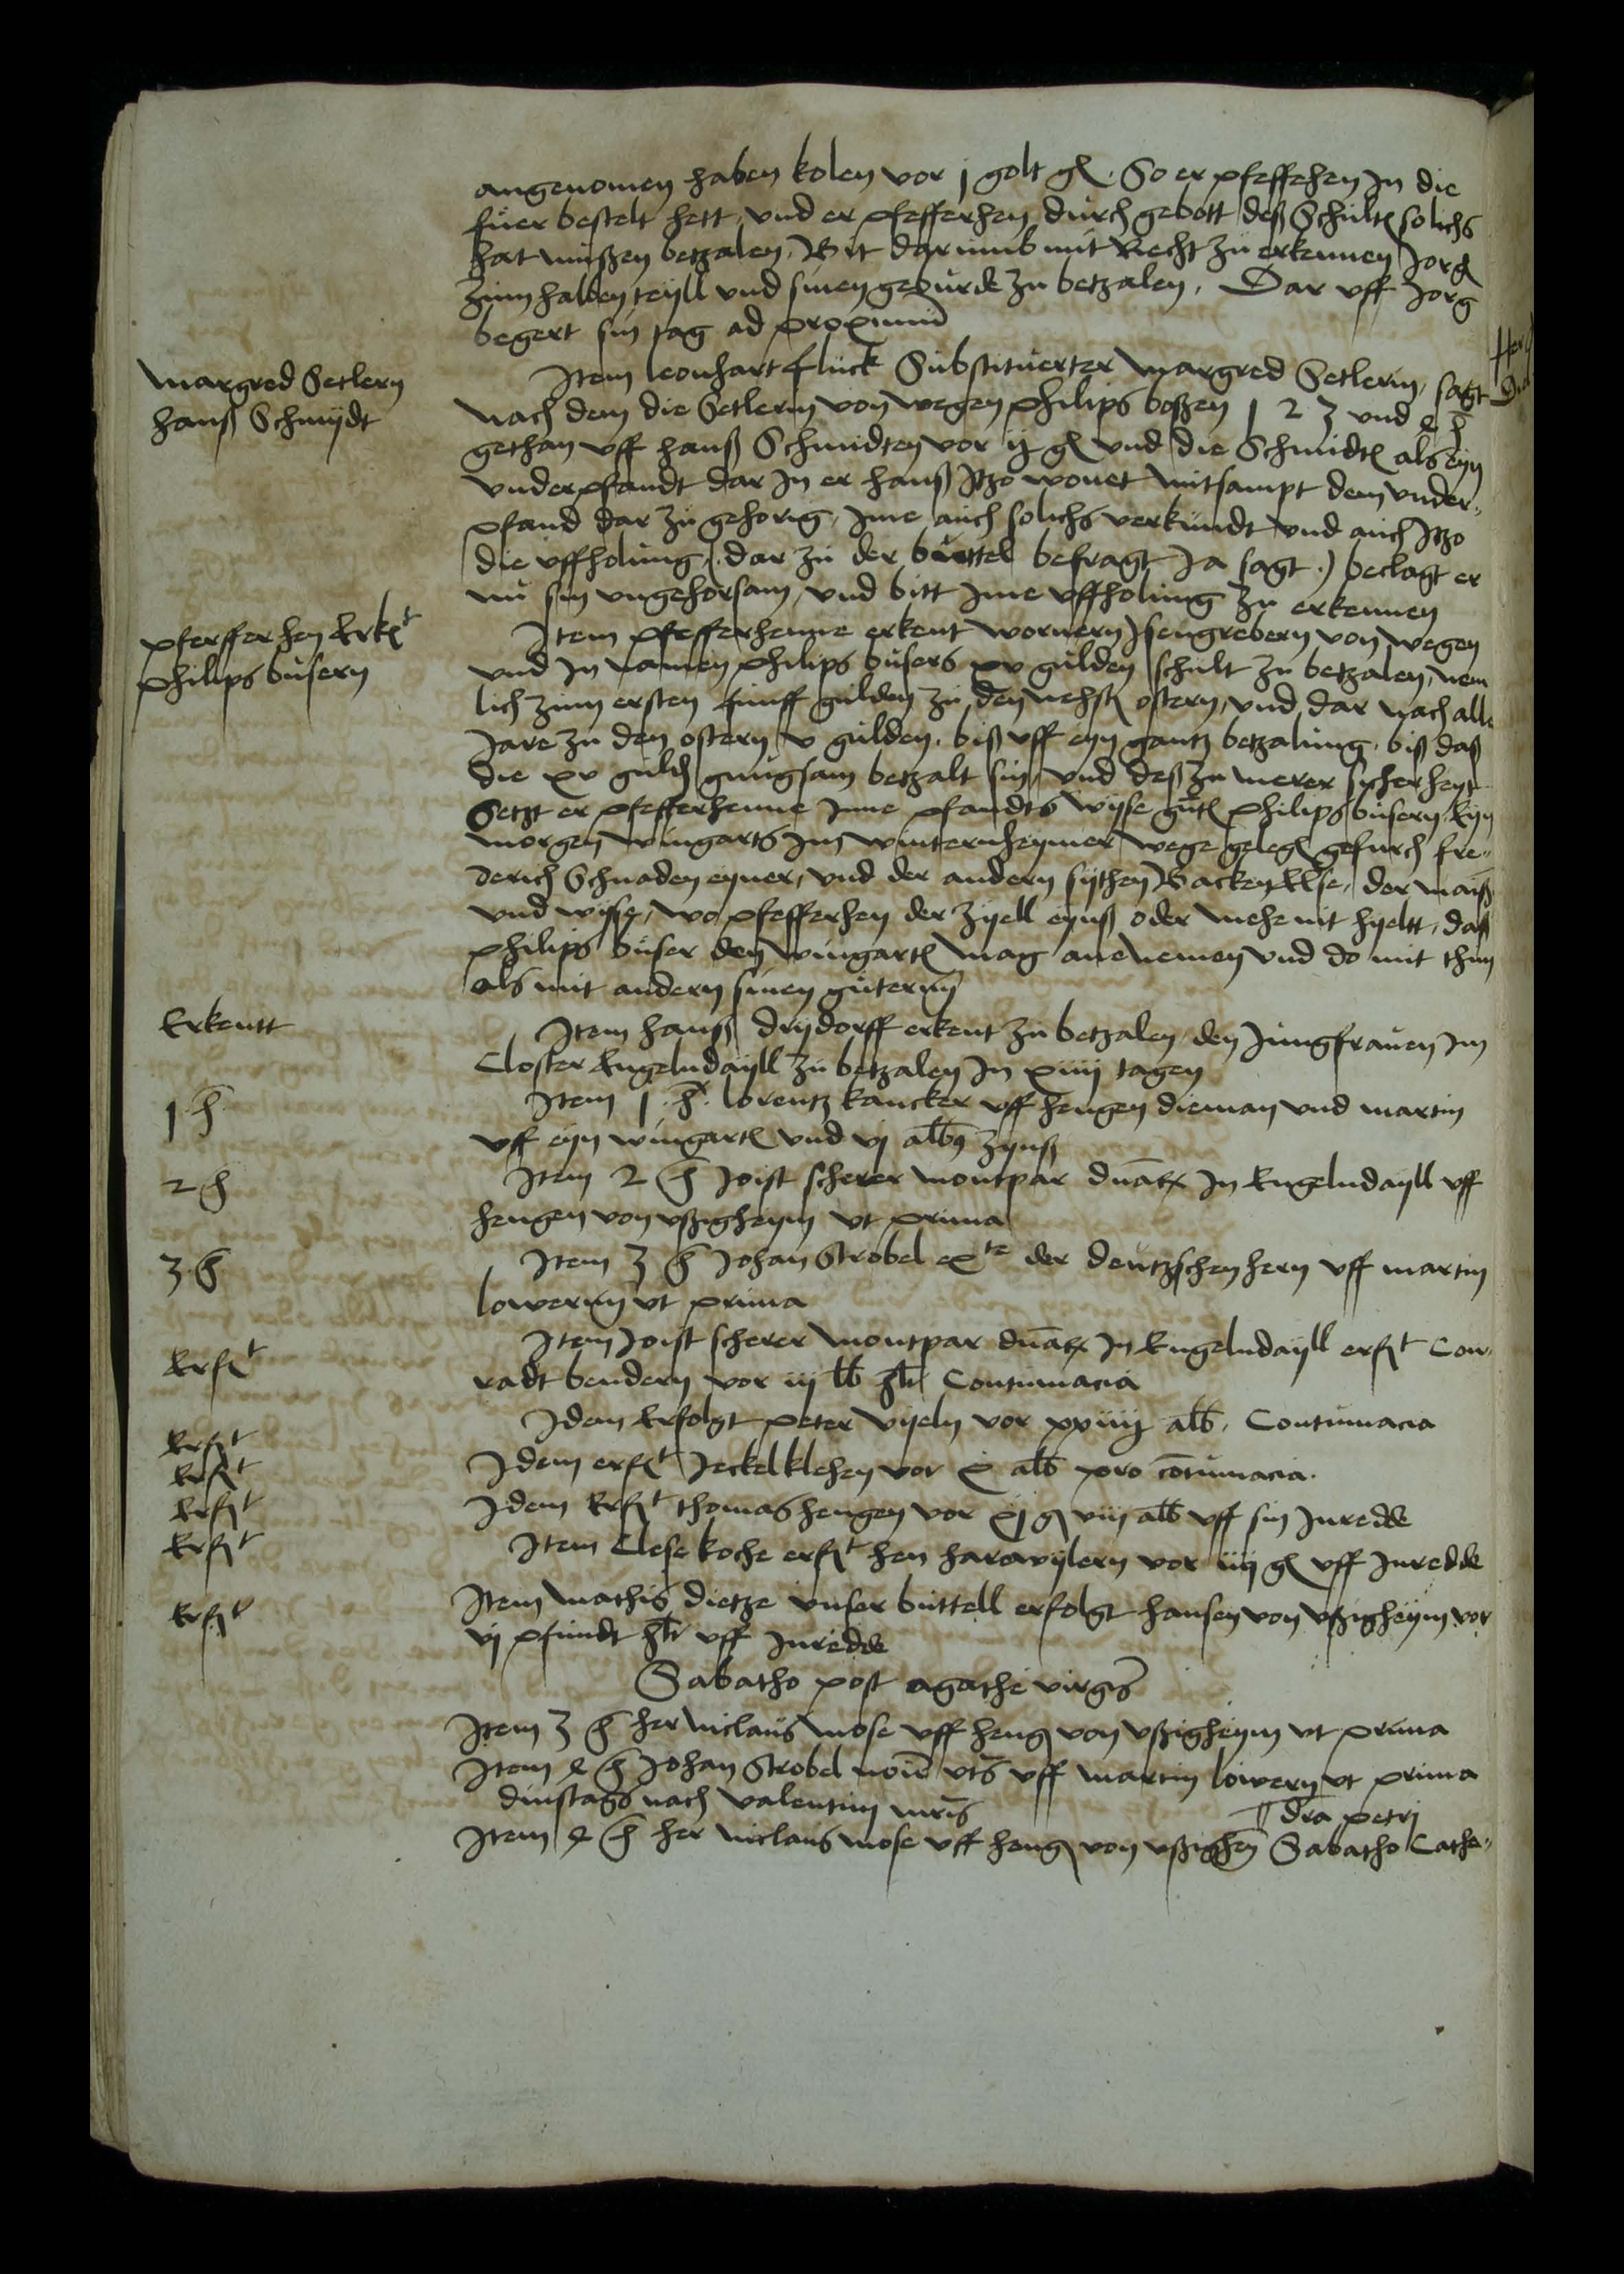 angenomen haben kolen vor j golt gl. So er pfeffehen Jn die
fuer bestelt hett, vnd er pfefferhen durch gebott deß Schult solichs
hat mußen betzalen, Bit darumb mit Recht zu erkennen Jorg
zum halben teyll vnd sinen geburde zu betzalen. Dar vff Jorg
begert sin tag ad proximu
Margred Setlern
hanß Schmydt
Item leonhart fluck Substituerter Margred Setlerin, sagt
Nach dem die Setlerin von wegen philips boßen 1 2 3 vnd 4 h
gethan vff hanß Schmidten vor ij gl vnd die Schmidt als eyn
vnderpfandt dar Jn er hanß Jtzo wonet mitsampt dem vnder-
pfand dar zu gehorig, Jme auch solichs verkundt vnd auch Jtzo
die vffholung (dar zu der buttel befragt Ja sagt) beclagt er
nu sin vngehorsam, vnd bitt Jme vffholung zu erkennen
pferfferhen Erkt
philips busern
Item pfefferhenne erkent wornern Jsengrebern von wegen
vnd Jn namen philips busers xv gulden schult zu betzalen, nem
lich zum ersten funff gulden zu den nehst ostern, vnd dar nach alle
Jare zu den ostern v gulden, biß vff eyn gantz betzalung, biß daß
die xv guld gnugsam betzalt sin, vnd deß zu merer sicherheyt
Setzt er pfefferhenne Jnne pfandts wyse gut philips busern Eyn
morgen wingarts Jm winternheymer wege geleg gefurch fre-
derich Schnaden eyner, vnd der andern sythen Backen Else, der maiß
vnd wyse, wo pfefferhen der zyell eynß oder mehe nit hyeltt, daß
philips buser den wingart mag anenemen vnd do mit thun
als mit andern sinen gutern
Erkentt
Item hanß drydorff erkent zu betzalen den Jungfrauen Jm
Closter Engelndayll zu betzalen Jn xiiij tagen
1 h
Item 1 h lorentz kancker vff hengen dieman vnd martin
vff eyn wingart vnd vj alb zynß
2 h
Item 2 h Joist scherer montpar dnar Jn Engelndayll vff
hengen von vßigheym vt prima
3 h
Item 3 h Johan Strobel ex te der deutzschen hern vff martin
lowern vt prima
Erft
Item Joist scherer montpar dnar Jn Engelndayll erft Con-
radt bendern vor iij lb hlr Contumacia
Erft
Idem Erfolgt peter vyeln vor xxiiij alb, Contumacia
Erft
Idem erft Jeckel klehen vor x alb pro cotumacia.
Erft
Idem Erft thomas hengen vor xj g viij alb vff sin Jnredde
Erft
Item Clese koche erft hen harawylern vor iiij gl vff Jnredde
Erft
Item mathis dietze vnser buttell erfolgt hansen von vßigheym vor
vj pfundt hlr vff Jnredde
Sabatho post agathe virgis
Item 3 h her niclaus mose vff heng von vßigheym vt prima
Item 4 h Johan Strobel noie vts vff martin lowern vt prima
dinstags nach valentini mris
dra petri
Item 4 h her niclaus mose vff heng von vßighey Sabatho Cathe-